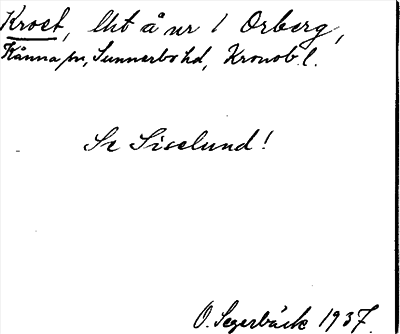 Krost, lht å nr 1 Orberg,
Kånna sn, Sunnerbo hd, Kronob. l.
Se Siselund!
O. Segerbäck 1937.